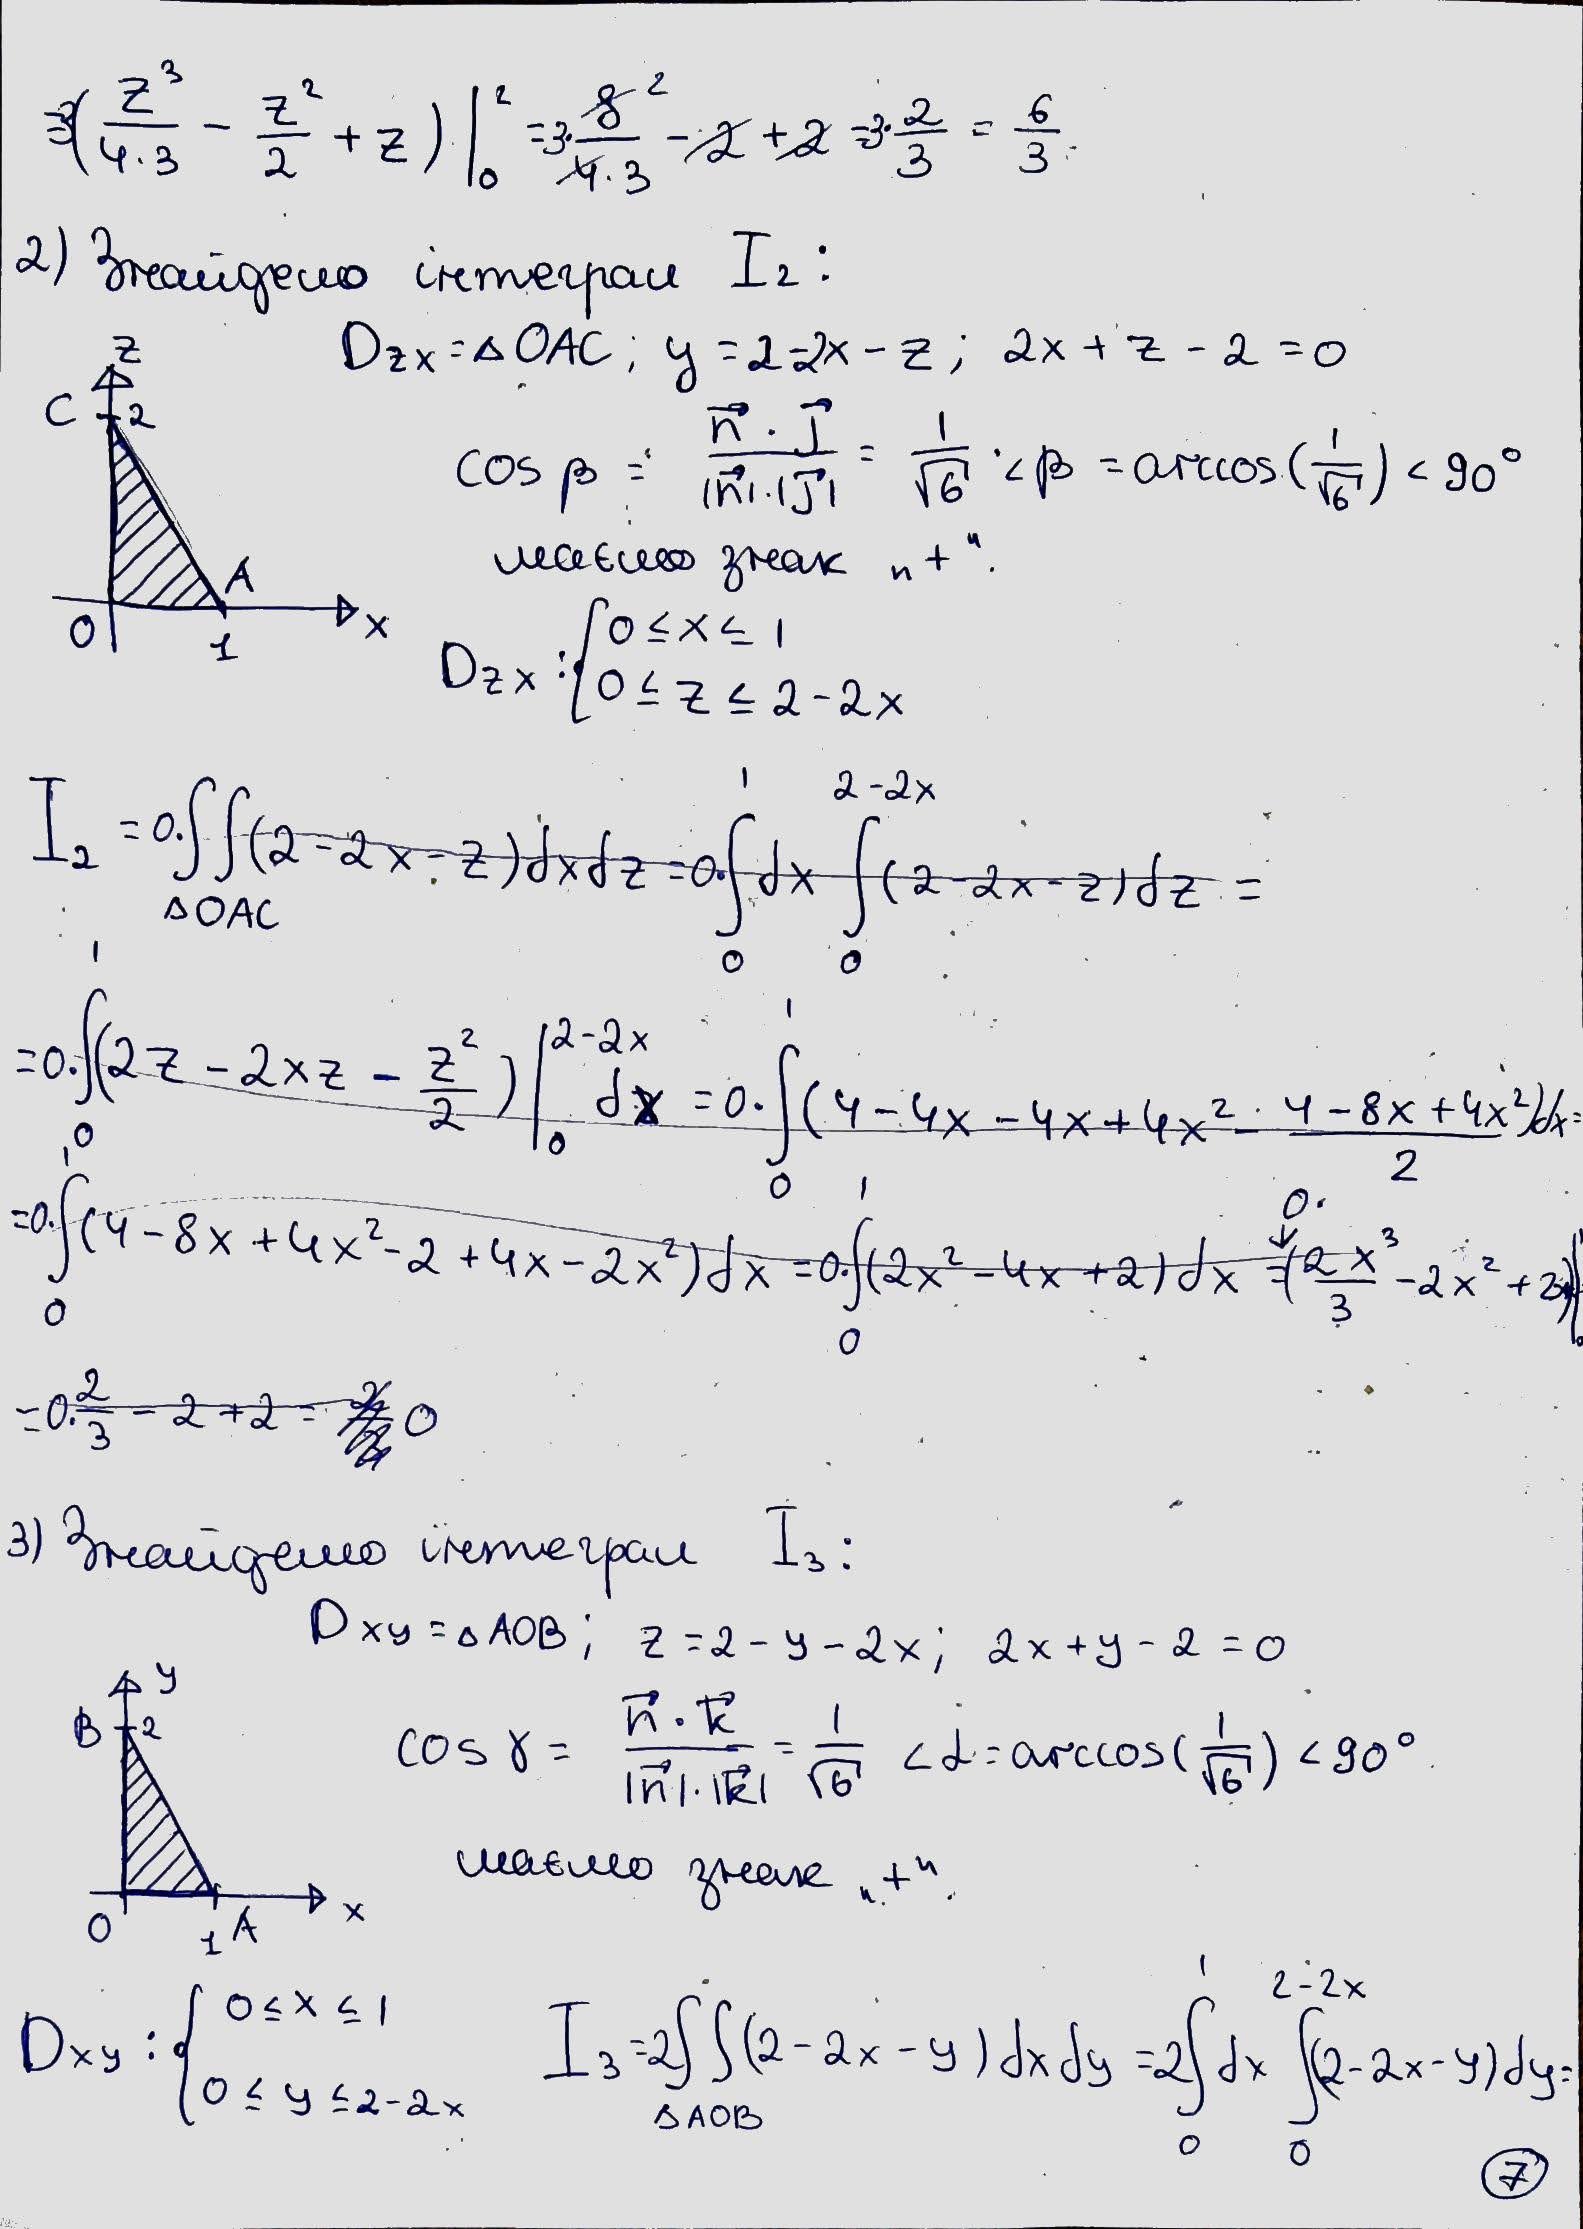 =3(z³/(4·3) - z²/2 + z)|₀² =3·8²/(4·3) - 2 + 2 =3·2/3 = 6/3
2) Знайдемо інтеграл I₂:
D_zx = △OAC; y = 2-2x - z; 2x + z - 2 = 0
z
C 2
cos β = (n⃗ · j⃗)/(|n⃗|·|j⃗|) = 1/√6 <β = arccos(1/√6) < 90°
маємо знак „+".
A
O 1 x
D_zx : { 0 ≤ x ≤ 1
0 ≤ z ≤ 2 - 2x
I₂ = 0·∫∫_△OAC (2 - 2x - z)dxdz = 0·∫₀¹ dx ∫₀^(2-2x) (2 - 2x - z)dz =
= 0·∫₀¹ (2z - 2xz - z²/2)|₀^(2-2x) dx = 0·∫₀¹ (4 - 4x - 4x + 4x² - (4 - 8x + 4x²)/2)dx =
= 0·∫₀¹ (4 - 8x + 4x² - 2 + 4x - 2x²)dx = 0·∫₀¹ (2x² - 4x + 2)dx = 0·(2x³/3 - 2x² + 2
= 0·2/3 - 2 + 2 = 0
3) Знайдемо інтеграл I₃:
D_xy = △AOB; z = 2 - y - 2x; 2x + y - 2 = 0
y
B 2
cos γ = (n⃗ · k⃗)/(|n⃗|·|k⃗|) = 1/√6 <α = arccos(1/√6) < 90°.
маємо знак „+".
O 1 A x
D_xy : { 0 ≤ x ≤ 1
0 ≤ y ≤ 2-2x
I₃ = 2∫∫_△AOB (2 - 2x - y)dxdy = 2∫₀¹ dx ∫₀^(2-2x) (2-2x-y)dy =
7